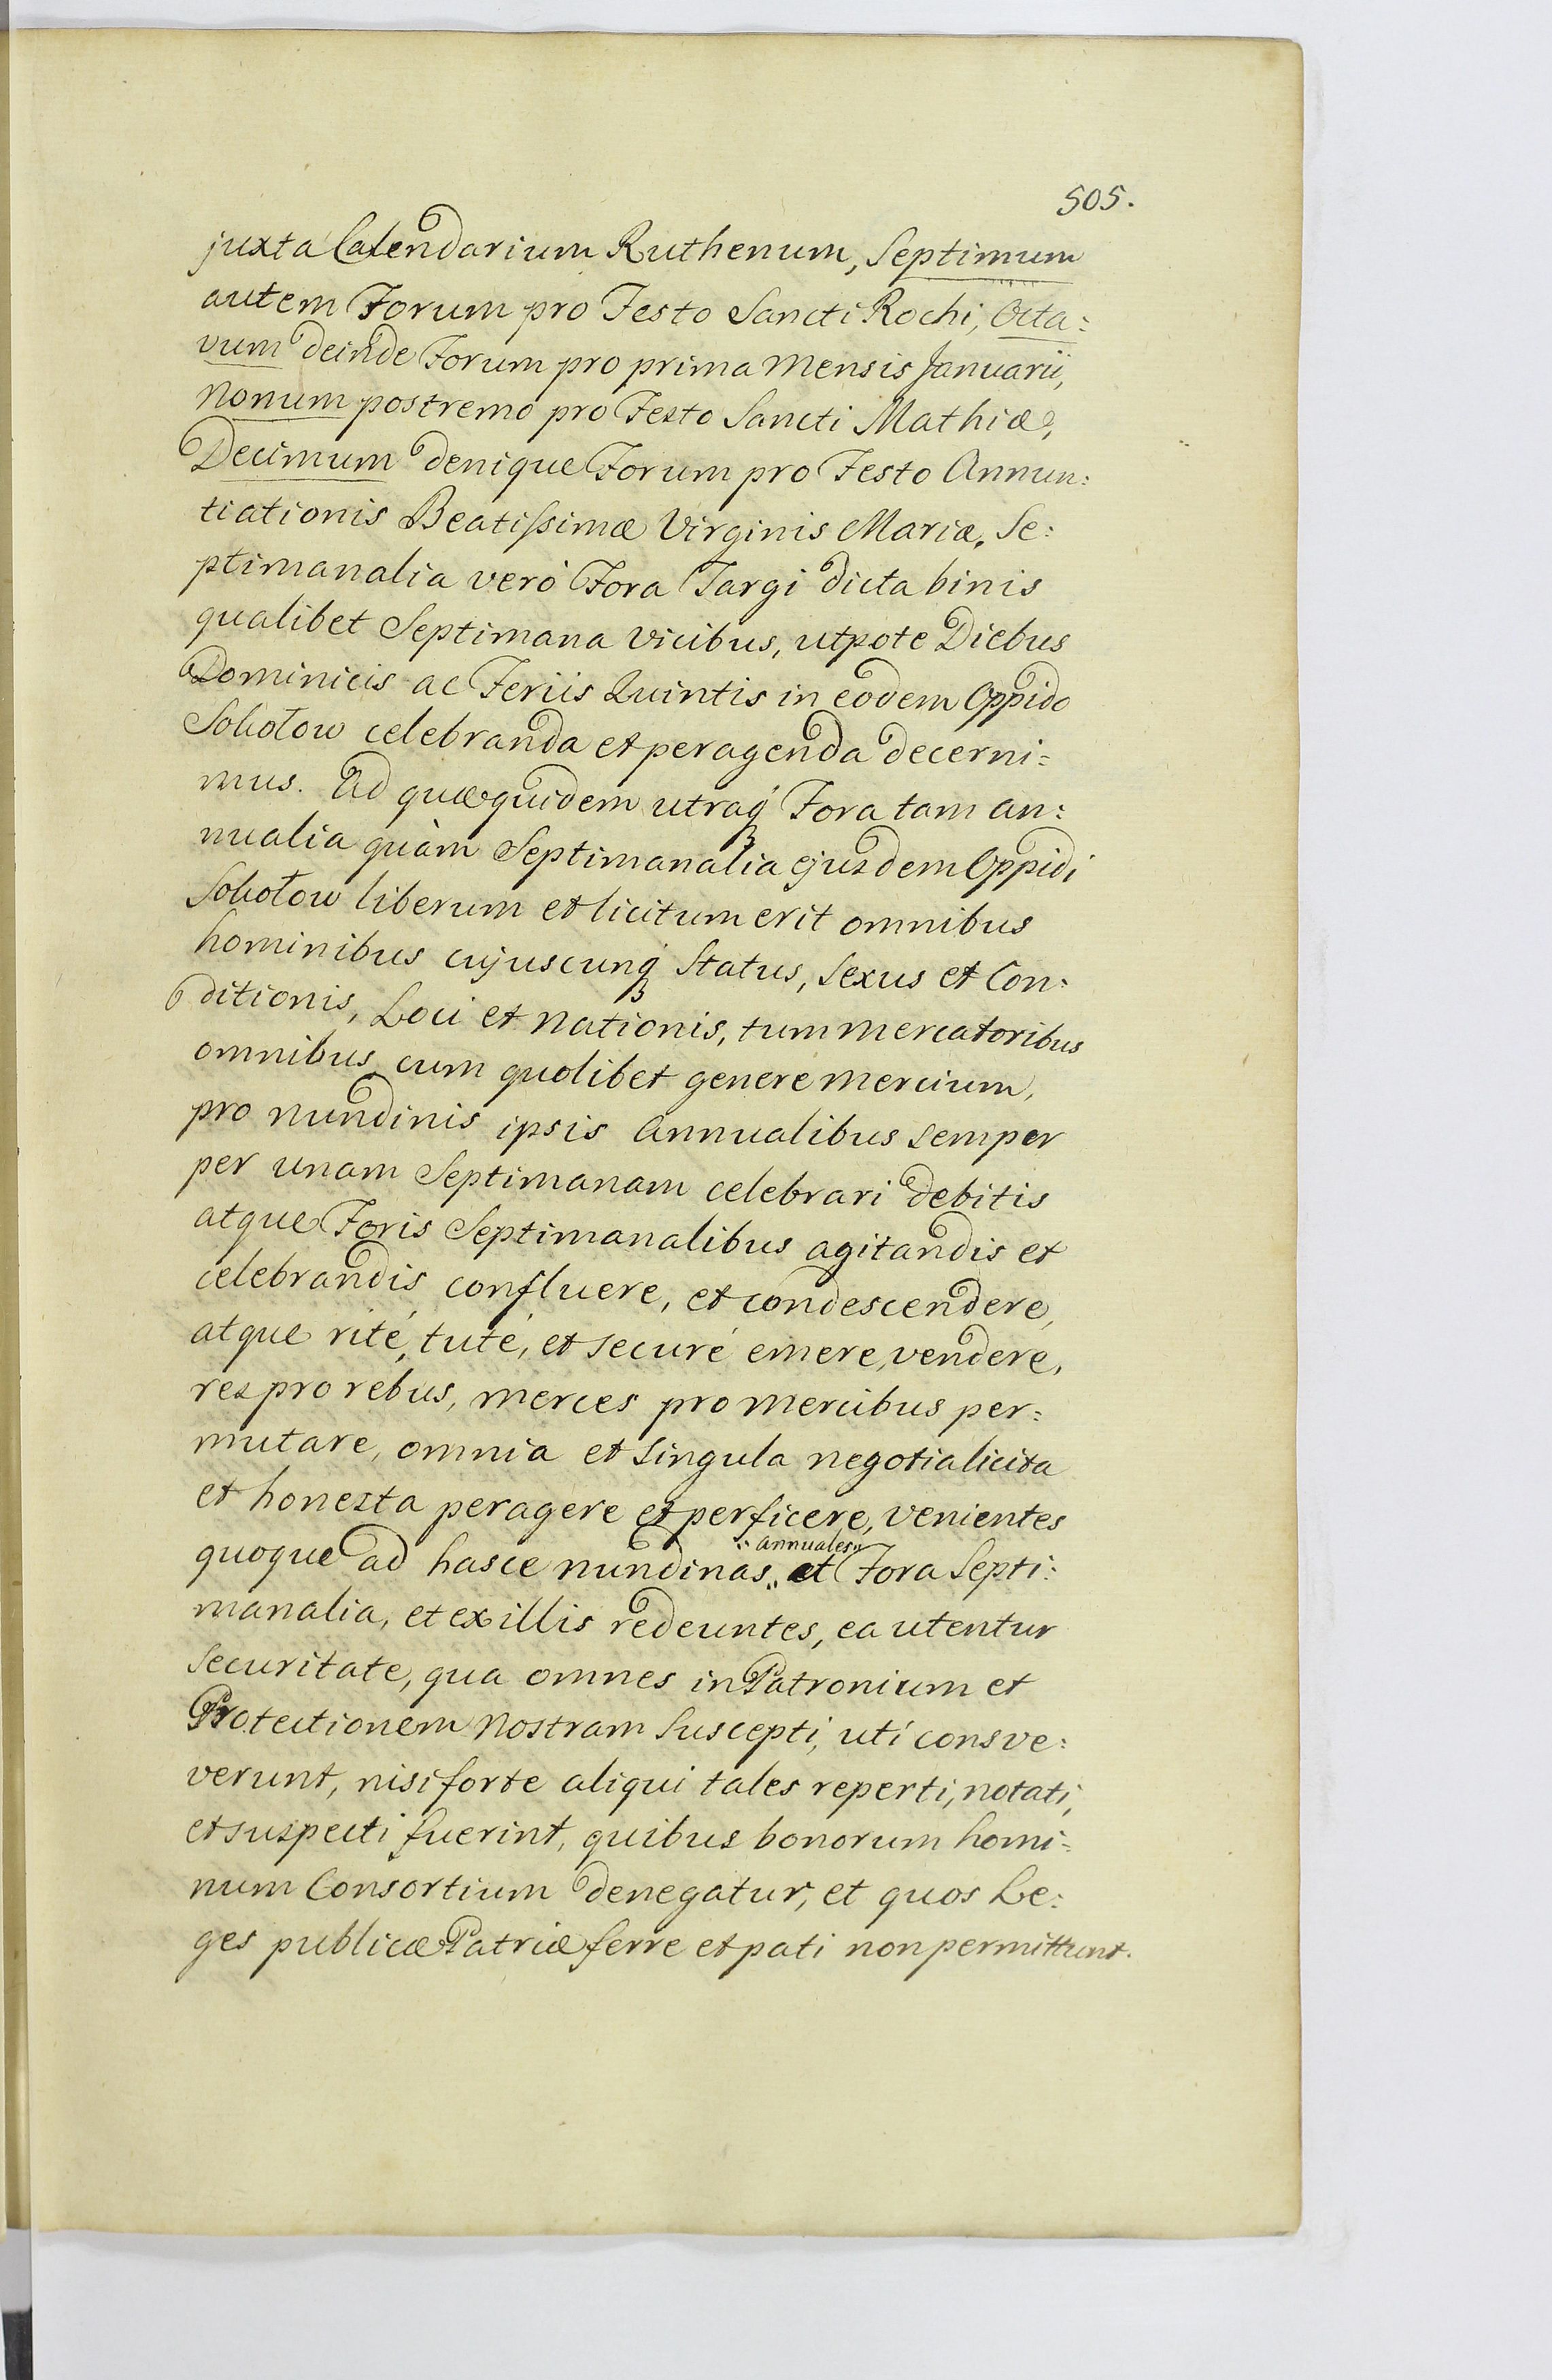 505.
juxta Calendarium Ruthenum, Septimum
autem Forum pro Festo Sancti Rochi, Octa:
vum deinde Forum pro prima Mensis Januarii,
Nonum postremo pro Festo Sancti Mathiæ,
Decimum denique Forum pro Festo Annun:
tiationis Beatissimæ Virginis Mariæ. Se:
ptimanalia veró Fora Targi dicta binis
qualibet Septimana vicibus, utpote Diebus
Dominicis ac Feriis Quintis in eodem Oppido
Sokołow celebranda et peragenda decerni:
mus. Ad quæ quidem utraq Fora tam an:
nualia quàm Septimanalia ejusdem Oppidi
Sokołow liberum et licitum erit omnibus
hominibus cujuscunq Status, Sexus et Con:
ditionis, Loci et Nationis, tum Mercatoribus
omnibus cum quolibet genere Mercium,
pro Nundinis ipsis Annualibus semper
per unam Septimanam celebrari debitis
atque Foris Septimanalibus agitandis et
celebrandis confluere, et condescendere,
atque rité, tuté, et securé emere, vendere,
res pro rebus, Merces pro Mercibus per:
mutare, omnia et singula negotia licita
et honesta peragere et perficere, venientes
quoque ad hasce nundinas annuales et Fora Septi:
manalia, et ex illis redeuntes, ea utentur
Securitate, qua omnes in Patronium et
Protectionem Nostram Suscepti, utí consve:
verunt, nisi forte aliqui tales reperti, notati,
et suspecti fuerint, quibus bonorum homi:
num Consortium denegatur, et quos Le:
ges publicæ Patriæ ferre et pati non permittunt.